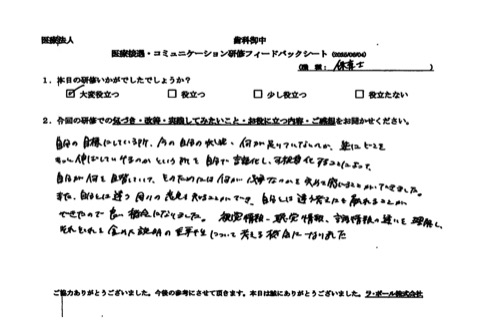 医療法人 歯科御中
医療接遇・コミュニケーション研修フィードバックシート (2025/06/04)
(職種: 保育士 )
1. 本日の研修いかがでしたでしょうか?
☑ 大変役立つ □ 役立つ □ 少し役立つ □ 役立たない
2. 今回の研修での気づき・改善・実践してみたいこと・お役に立つ内容・ご感想をお聞かせください。
自分の目標にしている所、今の自分の 何が足りていないのか、
伸ばしていけるのかという所を自分で言語化し、可視化することによって、
自分が何を目指していて、そのためには何が必要なのかを 感じることができました。
また、自分とは違う 意見も知ることができ、自分とは違う考えにも触れることが
できたので良い機会になりました。視覚情報・聴覚情報、言語情報の違いを理解し、
それぞれ 説明の について考える機会になりました
ご協力ありがとうございました。今後の参考にさせて頂きます。本日は誠にありがとうございました。ラ・ポール株式会社